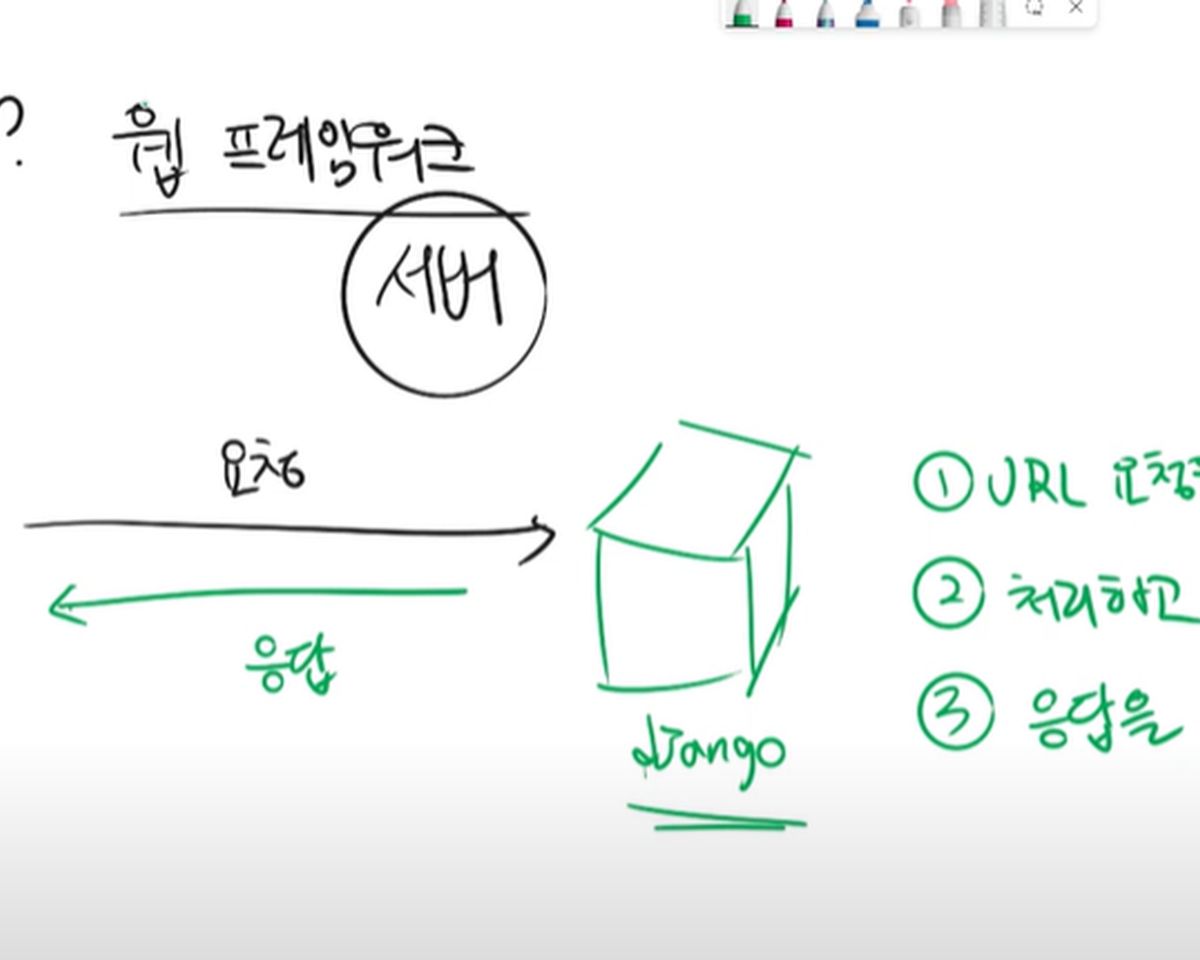 ? 웹 프레임워크
서버
요청
응답
django
① URL 요청
② 처리하고
③ 응답을